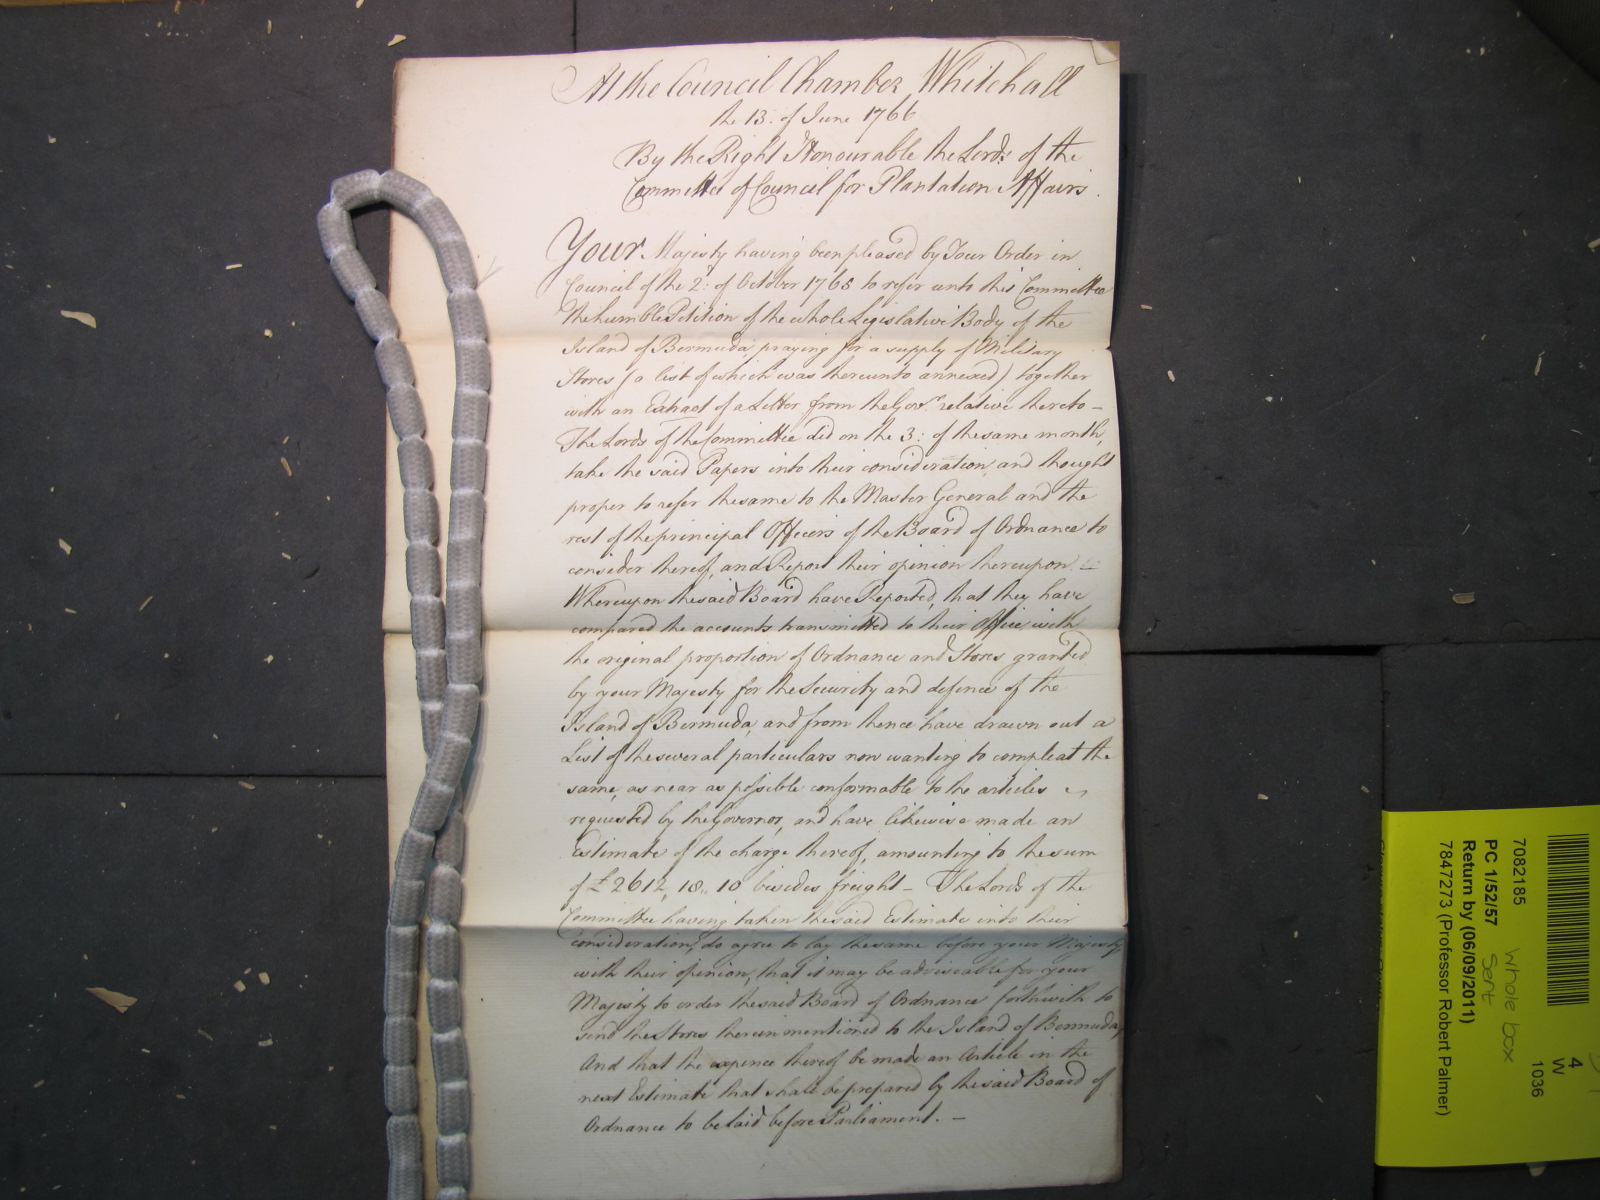 At the Council Chamber Whitehall
the 13: of June 1766
By the Right Honourable the Lords of the
Committee of Council for Plantation Affairs.
Your Majesty having been pleased by Your Order in
Council of the 2d: of October 1765 to refer unto this Committee
the humble Petition of the whole Legislative Body of the
Island of Bermuda, praying for a supply of Military
Stores (a list of which was thereunto annexed) together
with an Extract of a Letter from the Govr. relative thereto –
The Lords of the Committee did on the 3: of the same month,
take the said Papers into their consideration, and thought
proper to refer the same to the Master General and the
rest of the principal Officers of the Board of Ordnance to
consider thereof, and Report their opinion thereupon –
Whereupon the said Board have Reported, that they have
compared the accounts transmitted to their Office, with
the original proportion of Ordnance and Stores granted
by your Majesty for the Security and defence of the
Island of Bermuda, and from thence have drawn out a
List of the several particulars now wanting to compleat the
same, as near as possible conformable to the articles
requested by the Governor, and have likewise made an
Estimate of the charge thereof, amounting to the sum
of £2612, 18,, 10 besides freight – The Lords of the
Committee having taken the said Estimate into their
consideration, do agree to lay the same before your Majesty
with their opinion, that it may be adviseable for your
Majesty to order the said Board of Ordnance forthwith to
send the Stores therein mentioned to the Island of Bermuda,
And that the expence thereof be made an Article in the
next Estimate that shall be prepared by the said Board of
Ordnance to be laid before Parliament. –
7082185
PC 1/52/57
Return by (06/09/2011)
7847273 (Professor Robert Palmer)
whole box
Sent
4
W
1036